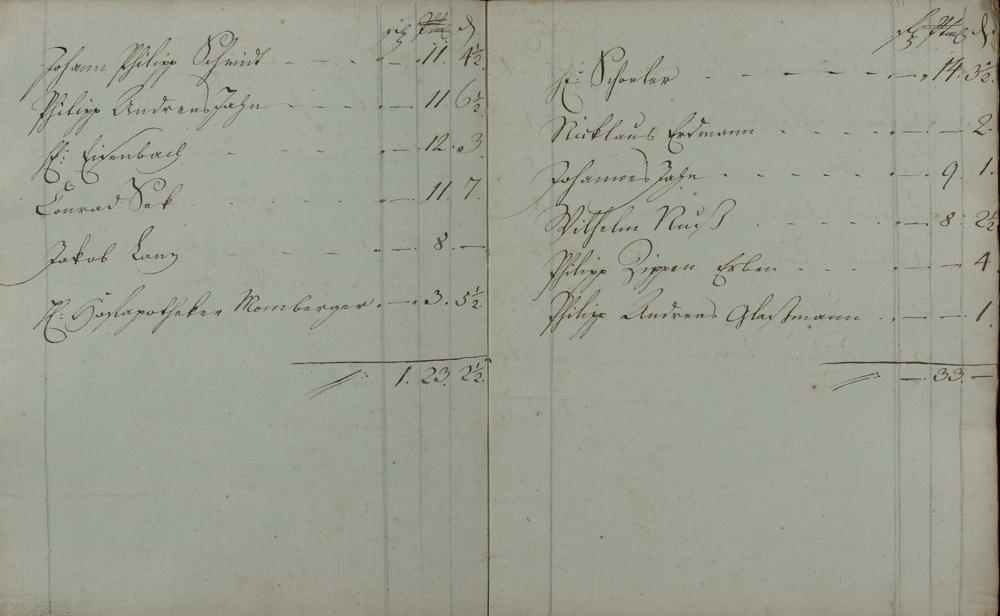 Johann Philipp Schmidt — 11. 4½
Philipp Andreas Jahn — 11. 6½
H: Eisenbach — 12. 3.
Conrad Sek — 11. 7.
Jakob Lanz — 8. —
H: Hofapotheker Momberger — 3. 5½
1. 23. 2½
H: Schoeler — 14. 3½
Nicklaus Erdmann — — 2.
Johannes Jahn — 9. 1.
Wilhelm Nuß — 8. 2½
Philipp Zippen Erben — — 4
Philipp Andreas Glaßmann — — 1.
— 33. —